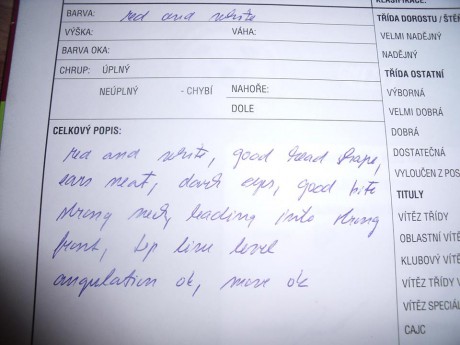 KLASIFIKACE:
BARVA: red and white
TŘÍDA DOROSTU / ŠTĚ
VÝŠKA: VÁHA:
VELMI NADĚJNÝ
BARVA OKA:
NADĚJNÝ
CHRUP: ÚPLNÝ
TŘÍDA OSTATNÍ
NEÚPLNÝ - CHYBÍ NAHOŘE:
VÝBORNÁ
DOLE
VELMI DOBRÁ
CELKOVÝ POPIS:
DOBRÁ
red and white, good head shape,
DOSTATEČNÁ
ears neat, dark eyes, good bite
VYLOUČEN Z POS
TITULY
strong neck, leading into strong
VÍTĚZ TŘÍDY
front, top line level
OBLASTNÍ VÍTĚ
KLUBOVÝ VÍTĚ
angulation ok, move ok
VÍTĚZ TŘÍDY
VÍTĚZ SPECIÁL
CAJC